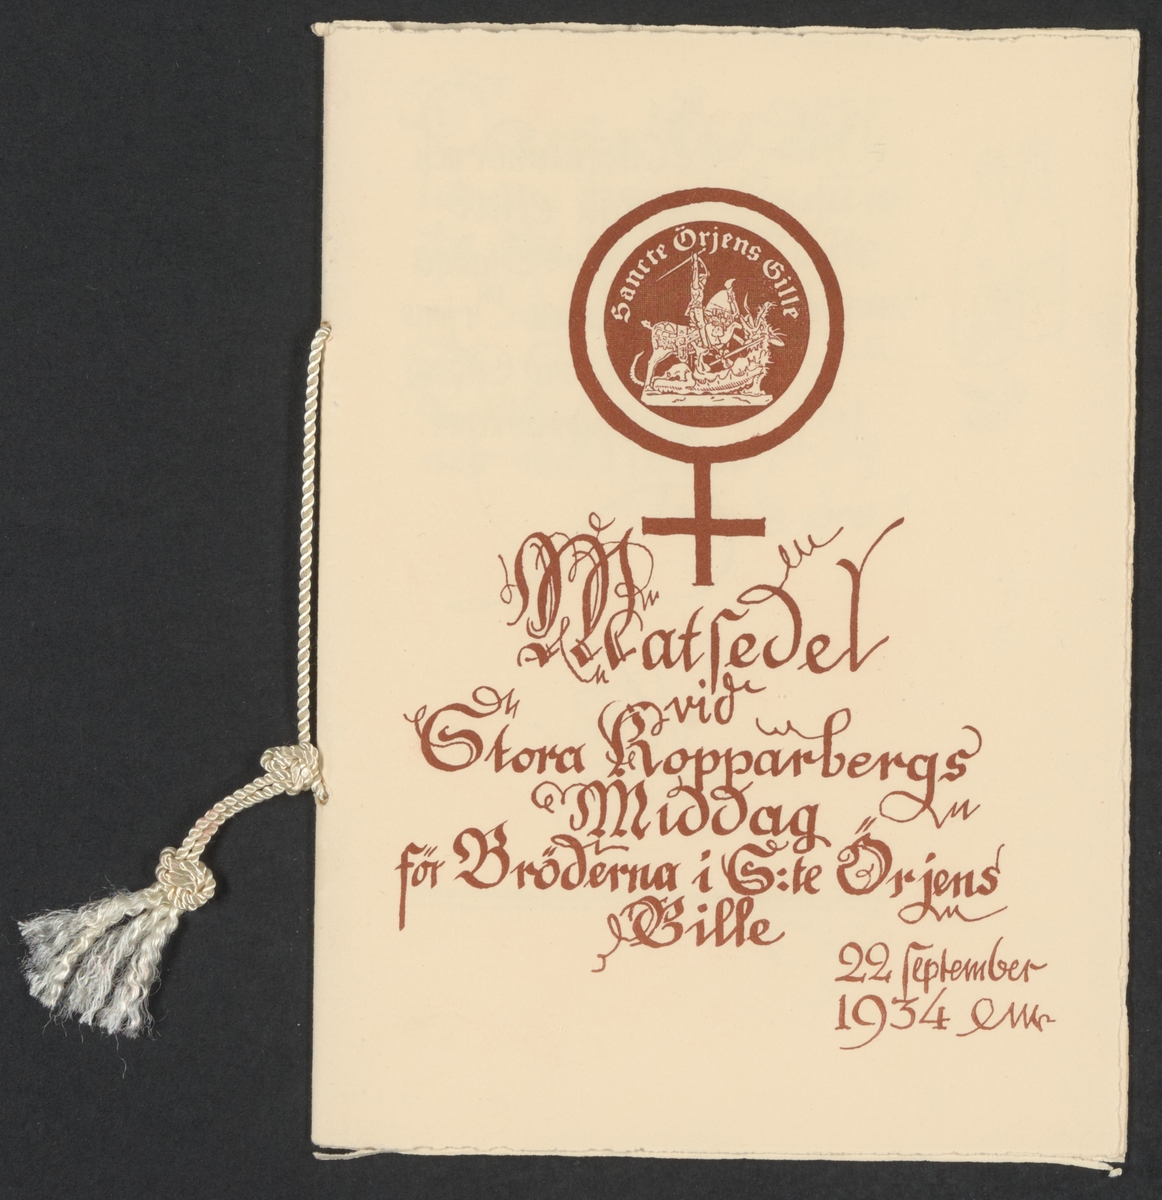 Sancte Örjens Gille
Matsedel
vid
Stora Kopparbergs
Middag
för Bröderna i S:te Örjens
Gille
22 september
1934